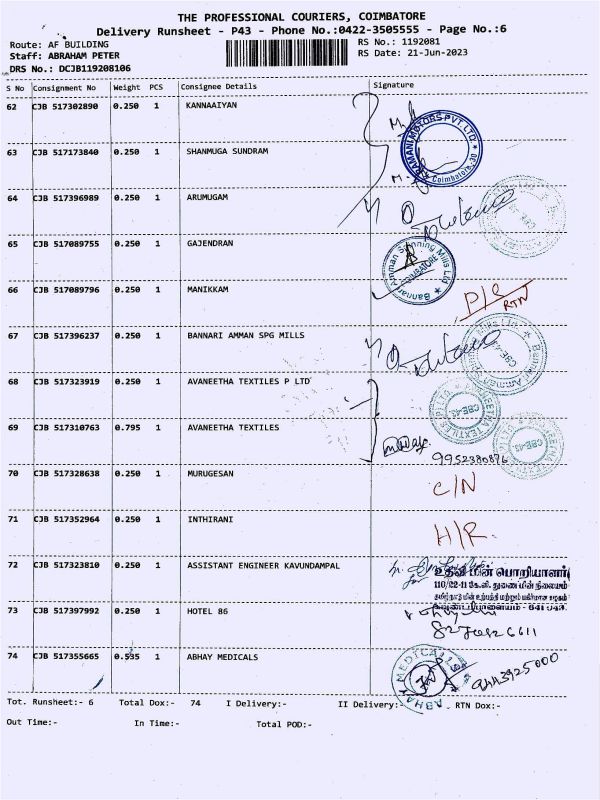 THE PROFESSIONAL COURIERS, COIMBATORE
Delivery Runsheet - P43 - Phone No.:0422-3505555 - Page No.:6
Route: AF BUILDING
Staff: ABRAHAM PETER
DRS No.: DCJB119208106
RS No.: 1192081
RS Date: 21-Jun-2023
S No Consignment No Weight PCS Consignee Details Signature
62 CJB 517302890 0.250 1 KANNAAIYAN
RAMANI MOTORS PVT LTD
Coimbatore
63 CJB 517173840 0.250 1 SHANMUGA SUNDRAM
64 CJB 517396989 0.250 1 ARUMUGAM
65 CJB 517089755 0.250 1 GAJENDRAN
Bannari Amman Spinning Mills Ltd
COIMBATORE
66 CJB 517089796 0.250 1 MANIKKAM
D/C
RTN
67 CJB 517396237 0.250 1 BANNARI AMMAN SPG MILLS
68 CJB 517323919 0.250 1 AVANEETHA TEXTILES P LTD
CBE-43
69 CJB 517310763 0.795 1 AVANEETHA TEXTILES
CBE-43
9952380876
70 CJB 517328638 0.250 1 MURUGESAN C/N
71 CJB 517352964 0.250 1 INTHIRANI H/R.
72 CJB 517323810 0.250 1 ASSISTANT ENGINEER KAVUNDAMPAL
உதவி மின் பொறியாளர்
110/22-11 கே.வி. துணை மின் நிலையம்
73 CJB 517397992 0.250 1 HOTEL 86
74 CJB 517355665 0.535 1 ABHAY MEDICALS
ABHAY MEDICALS
9443925000
Tot. Runsheet:- 6 Total Dox:- 74 I Delivery:- II Delivery:- RTN Dox:-
Out Time:- In Time:- Total POD:-